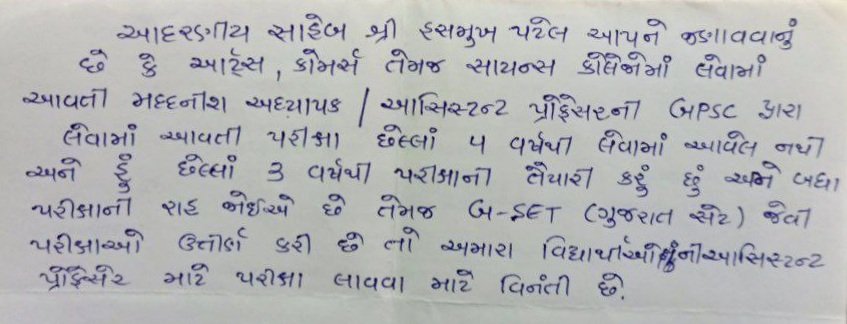 આદરણીય સાહેબ શ્રી હસમુખ પટેલ આપને જણાવવાનું
છે કે આર્ટ્સ, કોમર્સ તેમજ સાયન્સ કોલેજોમાં લેવામાં
આવતી મદદનીશ અધ્યાપક / આસિસ્ટન્ટ પ્રોફેસરની GPSC દ્વારા
લેવામાં આવતી પરીક્ષા છેલ્લાં ૫ વર્ષથી લેવામાં આવેલ નથી
અને હું છેલ્લાં 3 વર્ષથી પરીક્ષાની તૈયારી કરું છું અને બધા
પરીક્ષાની રાહ જોઈએ છે તેમજ G-SET (ગુજરાત સેટ) જેવી
પરીક્ષાઓ ઉત્તીર્ણ કરી છે તો અમારા વિદ્યાર્થીઓની આસિસ્ટન્ટ
પ્રોફેસર માટે પરીક્ષા લાવવા માટે વિનંતી છે.